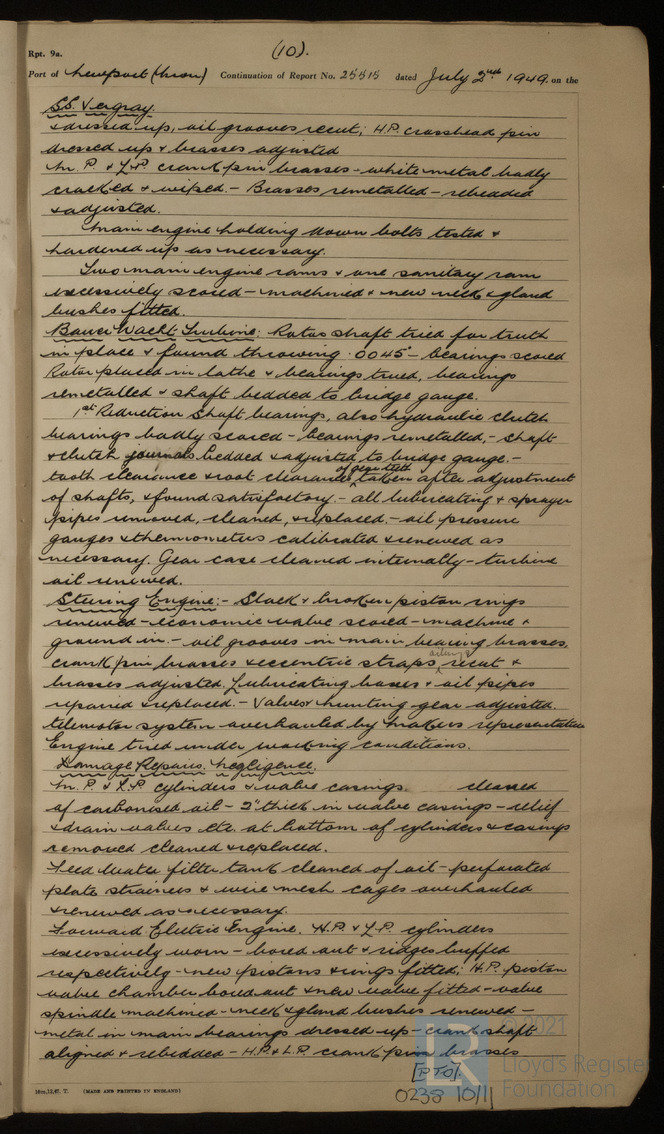 Rpt. 9a.
(10).
Port of Newport (Mon) Continuation of Report No. 25515 dated July 2nd 1949. on the
S.S. Vergray.
& dressed up, oil grooves recut; H.P. crosshead pin
dressed up & brasses adjusted
M.P. & L.P. crank pin brasses - white metal badly
cracked & wiped. - Brasses remetalled - rebedded
& adjusted.
Main engine holding down bolts tested &
hardened up as necessary.
Two main engine rams & one sanitary ram
excessively scored - machined & new neck & gland
bushes fitted.
Bauer Wacht Turbine: Rotor shaft tried for truth
in place & found throwing .0045" - bearings scored
Rotor placed in lathe & bearings trued, bearings
remetalled & shaft bedded to bridge gauge.
1st Reduction Shaft bearings, also hydraulic clutch
bearings badly scored - bearings remetalled, - shaft
& clutch journals bedded & adjusted to bridge gauge. -
tooth clearance & root clearance of gear teeth taken after adjustment
of shafts, & found satisfactory. - all lubricating & sprayer
pipes removed, cleaned, & replaced. - oil pressure
gauges & thermometers calibrated & renewed as
necessary. Gear case cleaned internally - turbine
oil renewed.
Steering Engine: - Slack & broken piston rings
renewed - economic valve scored - machine &
ground in. - oil grooves in main bearing brasses,
crank pin brasses & eccentric straps recut &
brasses adjusted. Lubricating boxes & oil pipes
repaired & replaced. - Valves & hunting gear adjusted.
telemotor system overhauled by makers representative
Engine tried under working conditions.
Damage Repairs. Negligence.
M.P. & L.P. cylinders & valve casings cleaned
of carbonised oil - 2" thick in valve casings - relief
& drain valves etc. at bottom of cylinders & casings
removed cleaned & replaced.
Feed Water filter tank cleaned of oil - perforated
plate strainers & wire mesh cages overhauled
& renewed as necessary.
Forward Electric Engine. H.P. & L.P. cylinders
excessively worn - bored out & ridges buffed
respectively - new pistons & rings fitted; H.P. piston
valve chamber bored out & new valve fitted - valve
spindle machined - neck & gland bushes renewed -
metal in main bearings dressed up - crank shaft
aligned & rebedded - H.P. & L.P. crank pin brasses
[PTO].
0238 10/11
10m,12,47. T. (MADE AND PRINTED IN ENGLAND)
2021
LR
Lloyd's Register
Foundation